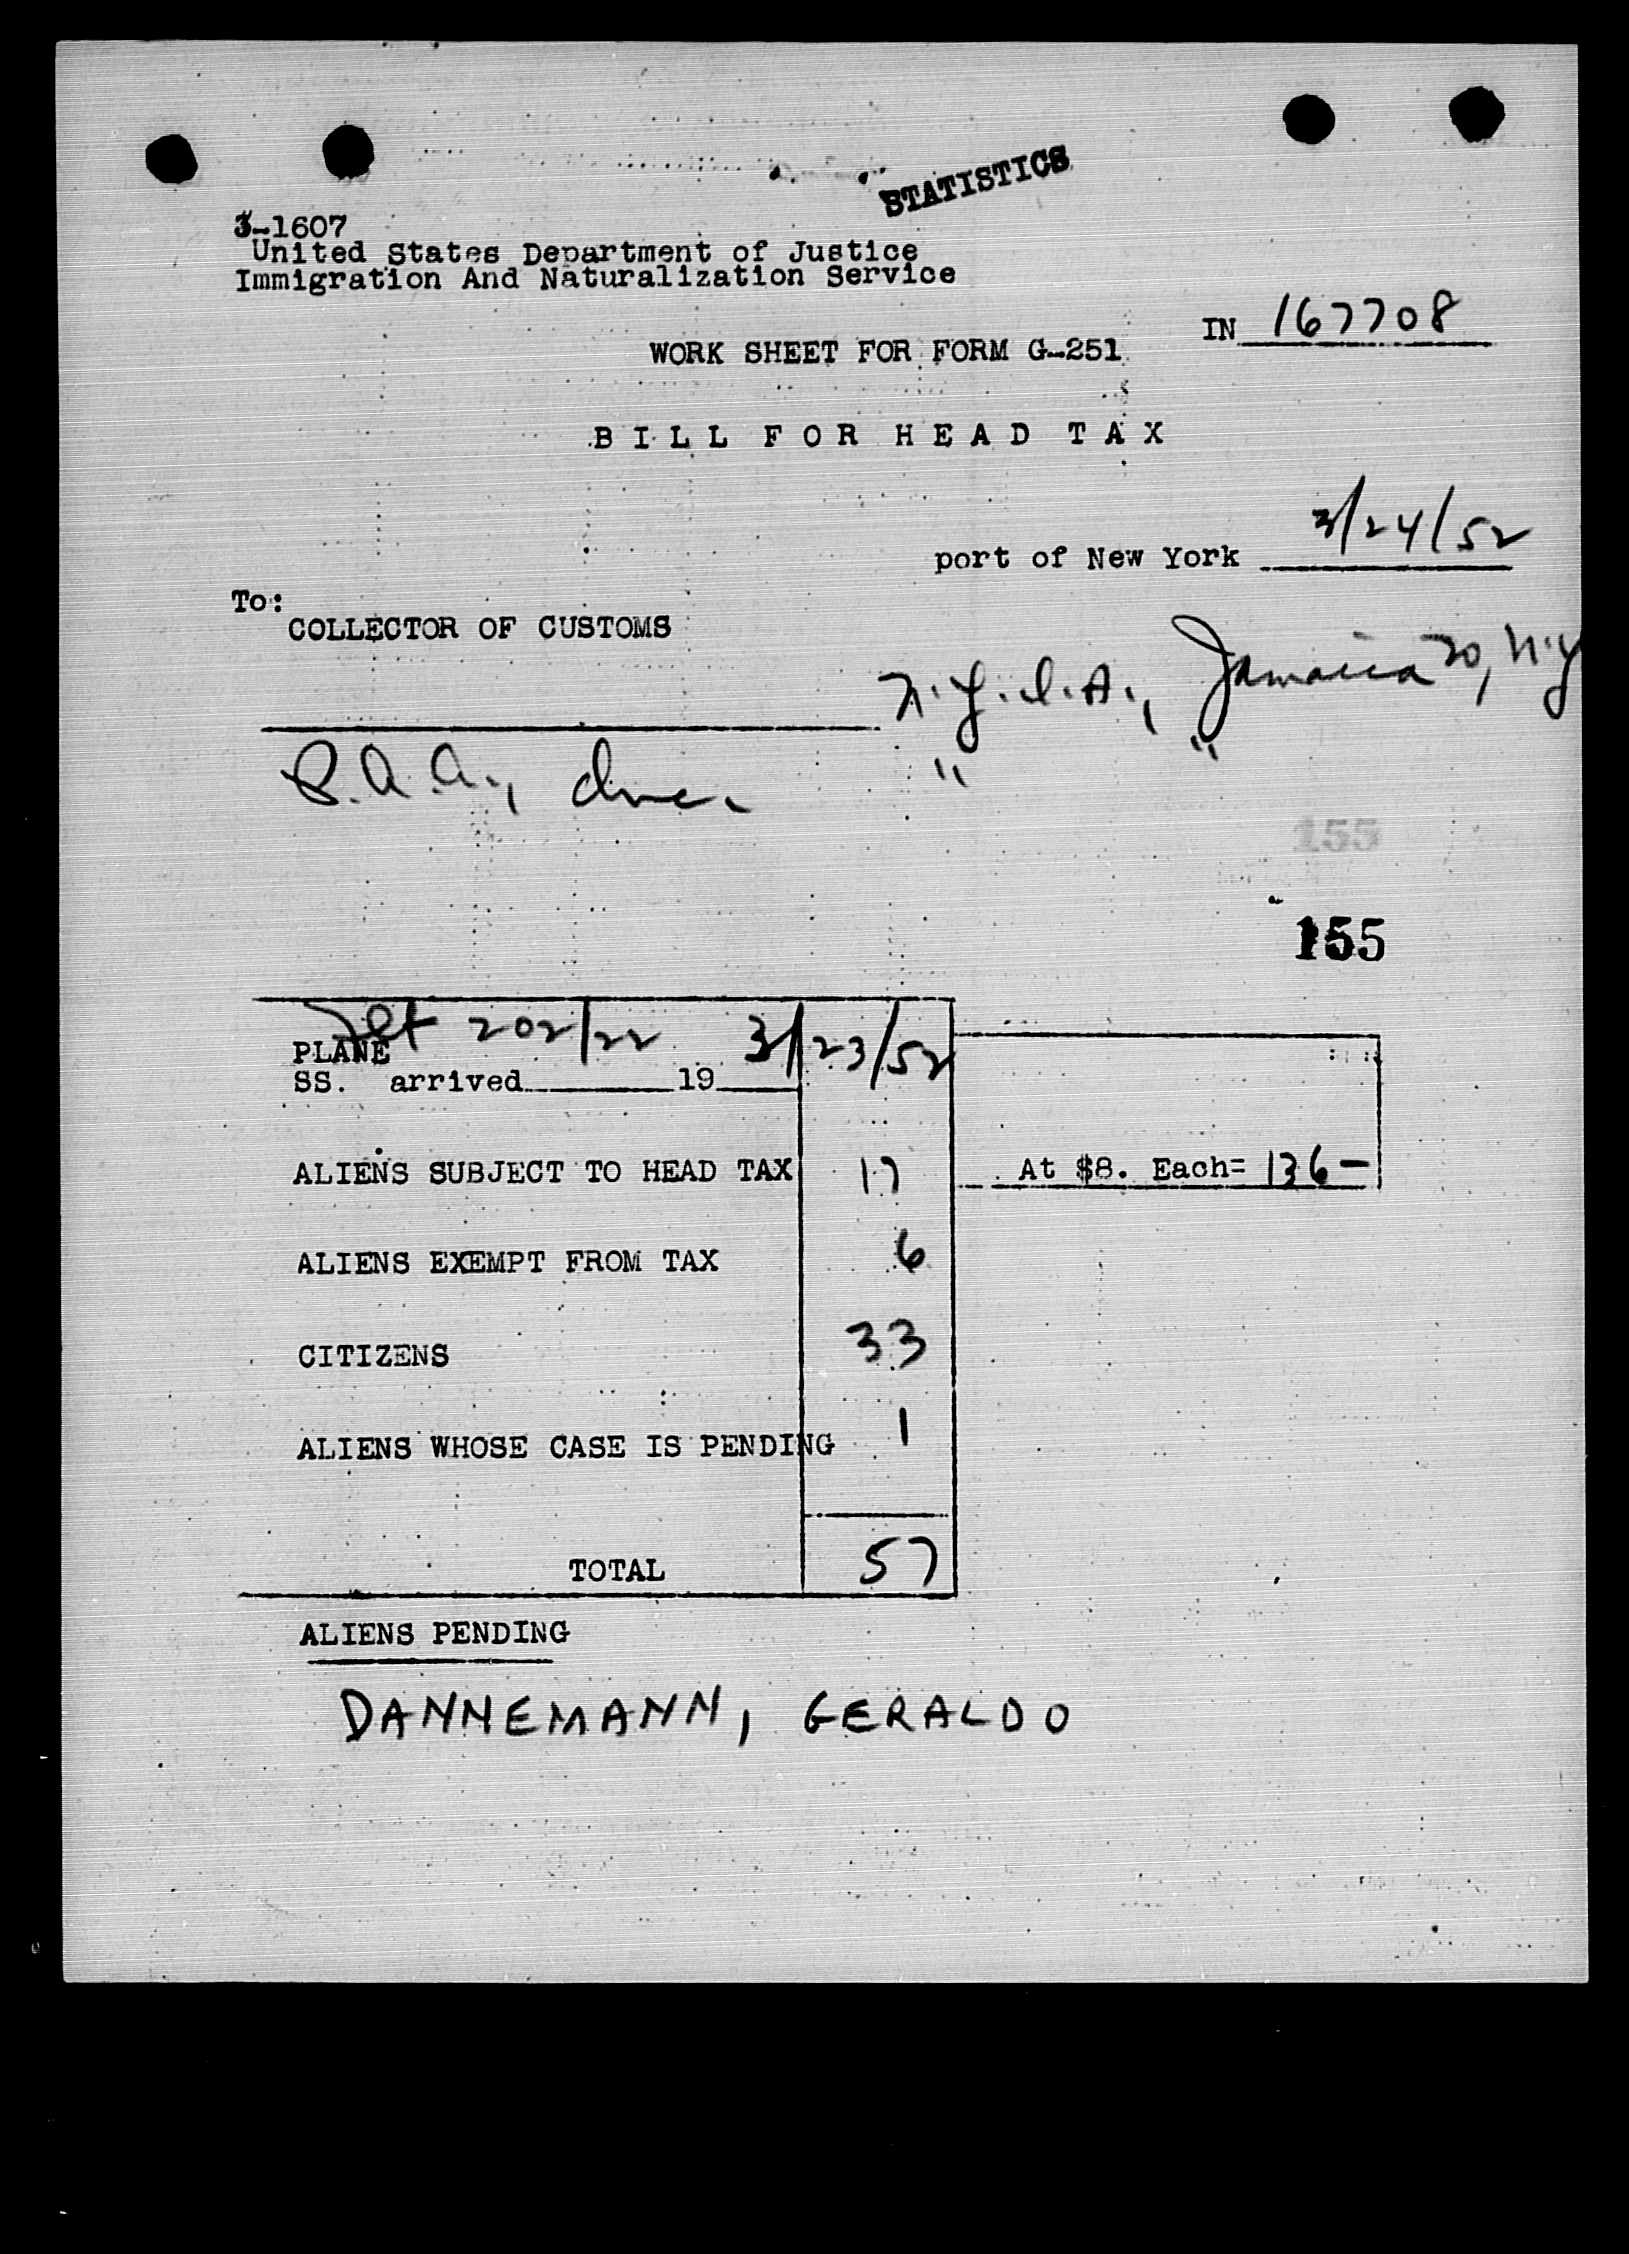 STATISTICS
3-1607
United States Department of Justice
Immigration And Naturalization Service
IN 167708
WORK SHEET FOR FORM G-251
BILL FOR HEAD TAX
port of New York 3/24/52
To:
COLLECTOR OF CUSTOMS
N.Y.I.A., Jamaica 30, N.Y
P.A.A., Inc. " "
155
155
PLANE Flt 202/22 3/23/52
SS. arrived 19
ALIENS SUBJECT TO HEAD TAX 17 At $8. Each= 136-
ALIENS EXEMPT FROM TAX 6
CITIZENS 33
ALIENS WHOSE CASE IS PENDING 1
TOTAL 57
ALIENS PENDING
DANNEMANN, GERALDO